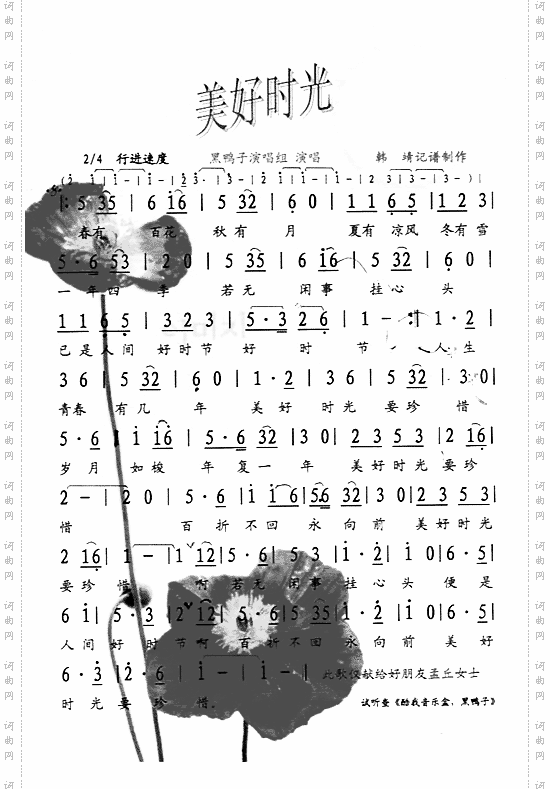 美好时光
2/4 行进速度 黑鸭子演唱组 演唱 韩 靖记谱制作
(2 i | i - | i - | 2 3· | 3 - | 2 i | i - | i - | 1 2 | 3 - | 3 - ) |
|: 5 35 | 6 i6 | 5 32 | 6 0 | 1 1 6 5 | 1 2 3 |
春有 百花 秋有 月 夏有 凉风 冬有雪
5 · 6 53 | 2 0 | 5 35 | 6 i6 | 5 32 | 6 0 |
一 年四 季 若无 闲事 挂心 头
1 1 6 5 | 3 2 3 | 5 · 3 2 6 | 1 - :| 1 · 2 |
已是人间 好时节 好 时 节 人生
3 6 | 5 32 | 6 0 | 1 · 2 | 3 6 | 5 32 | 3 0 |
青春 有几 年 美好 时光 要珍 惜
5 · 6 | i i6 | 5 · 6 32 | 3 0 | 2 3 5 3 | 2 16 |
岁月 如梭 年复一 年 美好时光 要珍
2 - | 2 0 | 5 · 6 | i i 6 | 56 32 | 3 0 | 2 3 5 3 |
惜 百折不回 永向前 美好时光
2 16 | 1 - | 1 12 | 5 · 6 | 5 3 | i · 2 | i 0 | 6 · 5 |
要珍惜 啊若无闲事挂心头 便是
6 i | 5 · 3 | 2 12 | 5 · 6 | 5 35 | i · 2 | i 0 | 6 · 5 |
人间好 时节啊 百折不回永向前 美好
6 · 3 | 2 · 6 | i - | i - | 此歌仅献给好朋友孟丘女士
时光要珍惜. 试听查《酷我音乐盒，黑鸭子》
词曲网
词曲网
词曲网
词曲网
词曲网
词曲网
词曲网
词曲网
词曲网
词曲网
词曲网
词曲网
词曲网
词曲网